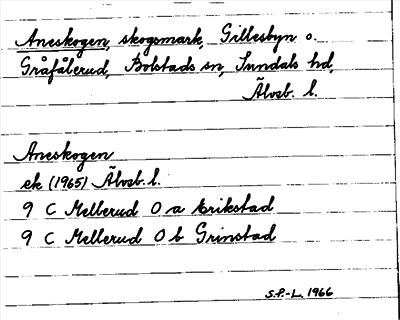 Aneskogen, skogsmark, Gillesbyn o.
Gråfålerud, Bolstads sn, Sundals hd,
Älvsb. l.
Aneskogen
ek (1965) Älvsb. l.
9 C Mellerud 0 a Erikstad
9 C Mellerud 0 b Grinstad
S.P.-L. 1966